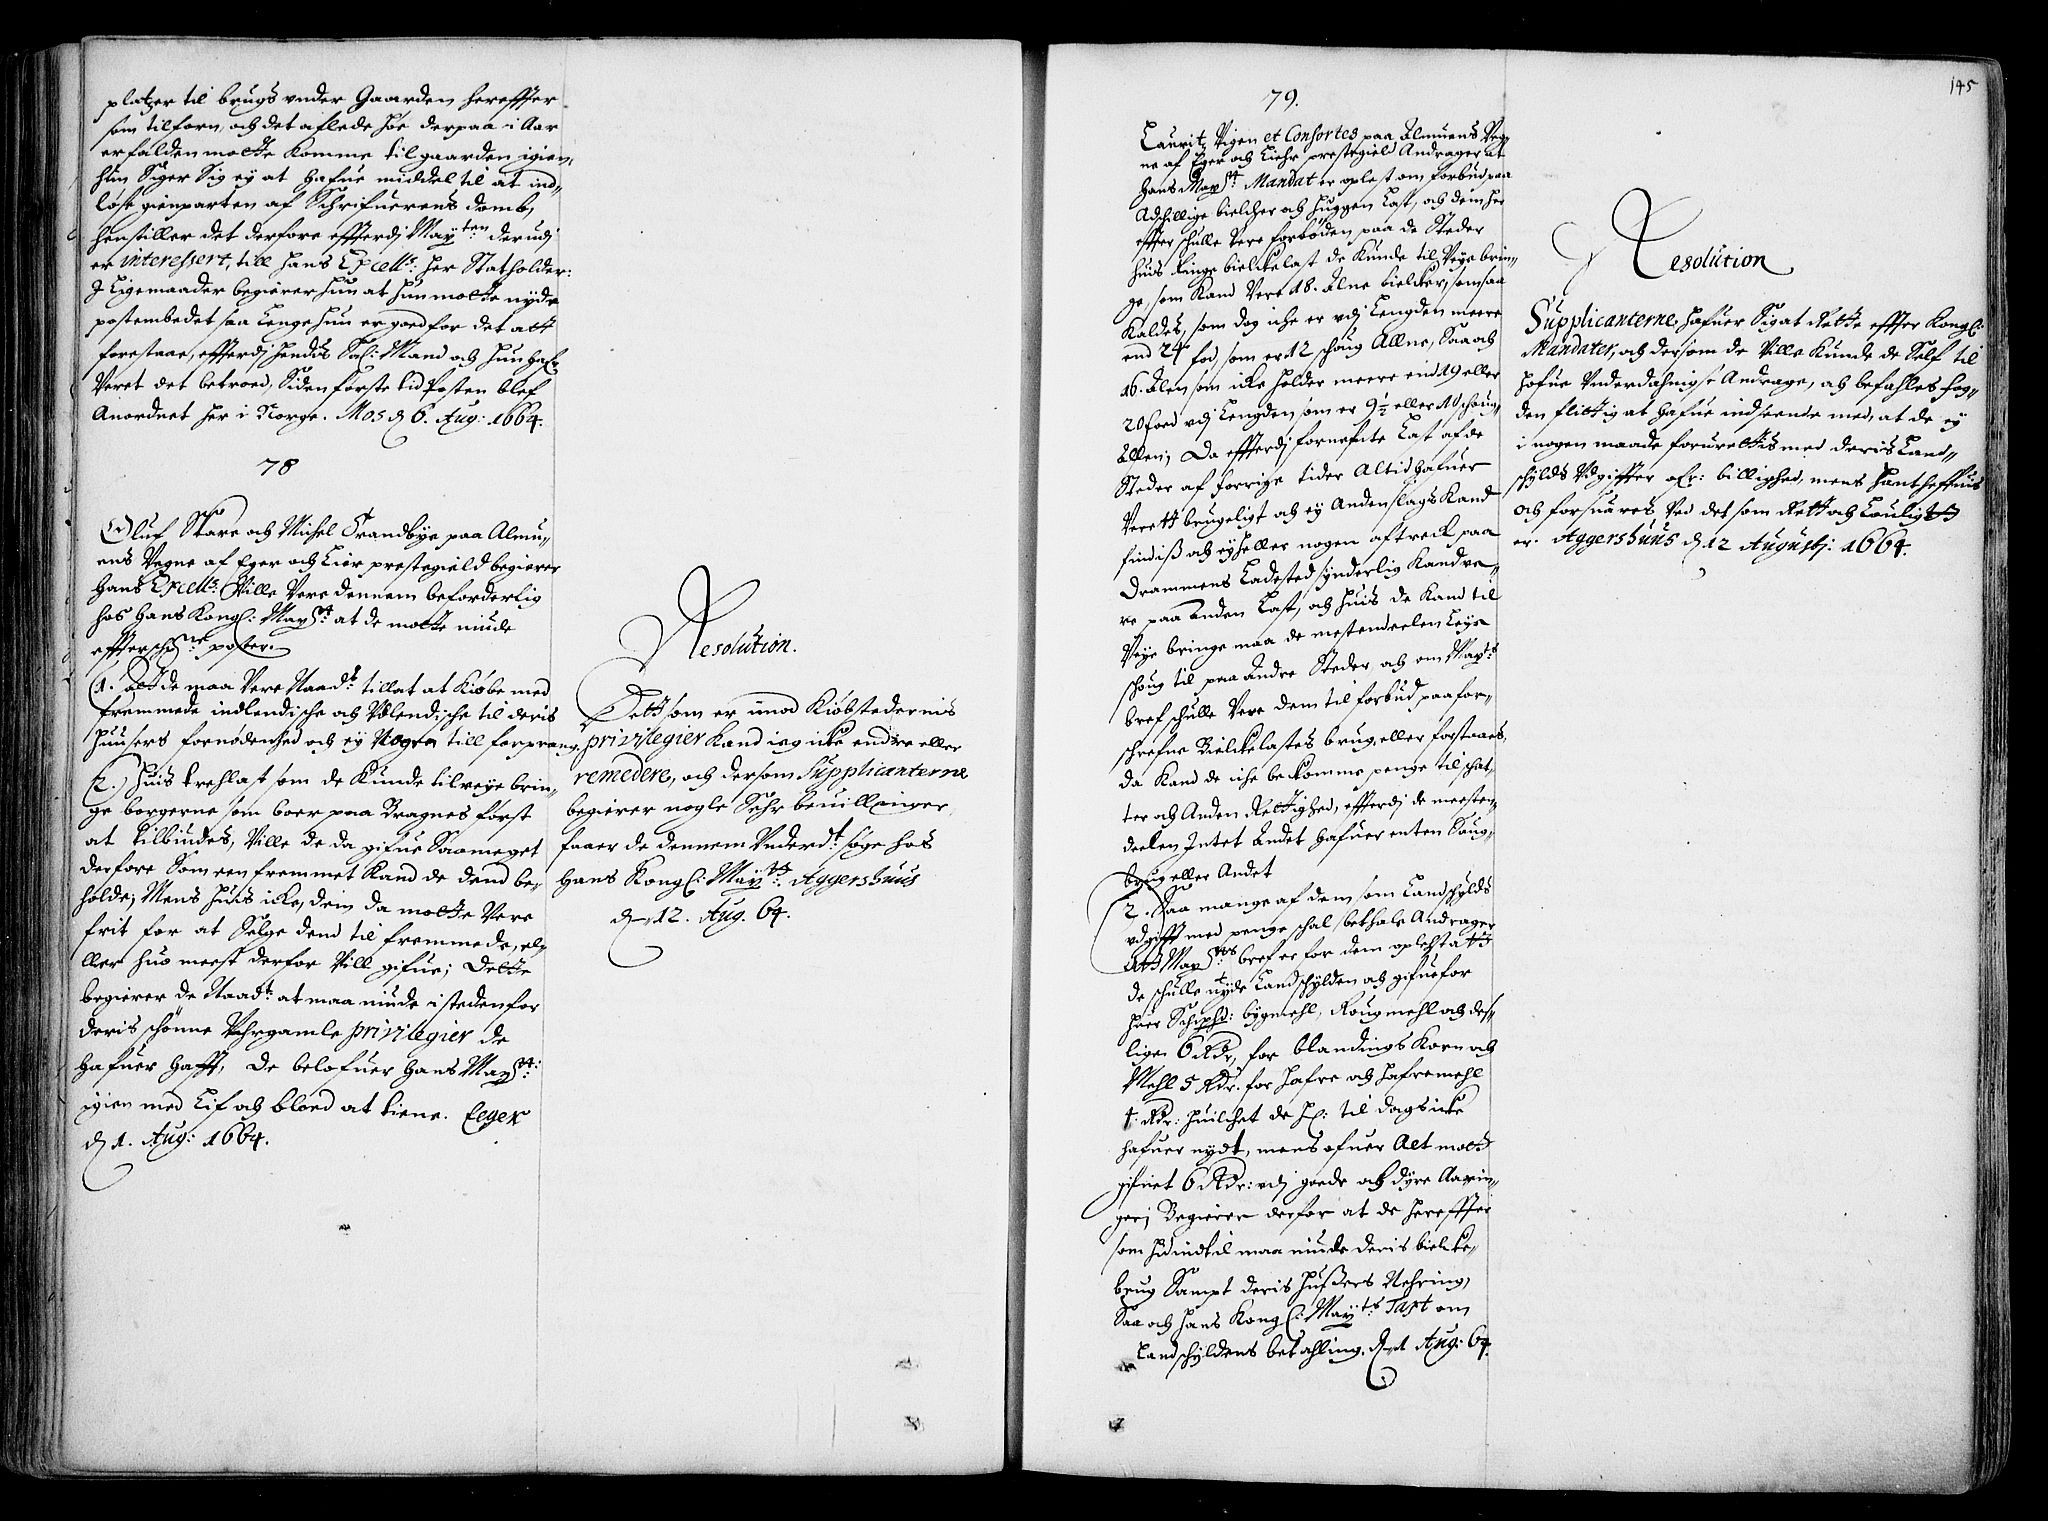 platzer til brugs vnder Gaarden hereffter
som tilforn, och det aflede høe derpaa i Aar
erfalden motte komme til gaarden igien,
hun Siger Sig ey at hafue middel til at ind„
løse gienparten af Schrifuerens domb,
henstiller det derfore effterdj Mayten derudj
er interessert, till hans Excells: her Statholder:
J Ligemaader begierer hun at hun motte nyde
postembedet saa Lenge hun er goed for det att
forestaae, effterdj hendis Sal: Mand och hun haf:
Veret det betroed, Siden første tid Posten blef
Anordnet her i Norge. Mos d 6. Aug: 1664.
78
Oluf Skare och Michel Trandbye paa Almu„
ens Vegne af Eger och Lier prestegield begierer
Hans Excells: Ville Vere dennem beforderlig
hos Hans Kongl: Mayst: at de motte niude
effterschne poster.
1. Att de maa Vere Naadt tillat at Kiøbe med
fremmede indlendische och Vdlendische til deris
huusers fornødenhed och ey Nogen till forprang.
2. Huis trehlast som de kunde tilveye brin„
ge borgerne som boer paa Bragnes først
at tilbindes, Ville de da gifue Saameget
derfore Som een fremmet kand de dend be„
holde; Mens huis icke, dem da motte Vere
frit for at Selge dend til fremmede, el„
ller huo meest derfor Vill gifue; Dette
begierer de Naadt at maa niude i stedenfor
deris schønne Vhrgamle privilegier de
hafuer hafft, De belofuer Hans Mayst:
igien med Lif och bloed at tiene. Eeger
d 1. Aug: 1664.
Resolution.
Dett som er imod Kiøbstedernis
privilegier kand ieg icke endre eller
remedere, och dersom Supplicanterne
begierer nogle Sehr beuillinger,
faaer de dennem Vnderdt søge hos
Hans Kongl: Mayst: Aggershuus
d 12. Aug. 64.
145
79.
Lauritz Vigen et Consortes paa Almuens Veg„
ne af Eger och Liehr prestegield Andrager at
Hans Mayst: Mandat er oplest om forbud paa
Adschillige bielcher och huggen Last, och dem her
effter schulle Vere forbøden paa de Steder
huis ringe bielckelast de kunde til Veye brin„
ge, som kand Vere 18. Alne bielcker, som saa
kaldes, som dog iche er vdj Lengden meere
end 24 fod, som er 12 schoug Allne, Saa och
16. Alen som icke holder meere end 19 eller
20 foed vdj Lengden som er 9½ eller 10 schoug„
Allen; Da effterdj fornefnte Last af de
Steder af forrige tider Altid hafuer
Verett brugeligt och ey Andenslags kand
findis och ey heller nogen aftreck paa
Drammens Ladested synderlig kand ve„
re paa anden Last, och huis de kand til
Veye bringe maa de mestendeelen Leye
schoug til paa Andre Steder, och om Mayts
bref schulle Vere dem til forbud paa for„
schrefne Bielckelastes brug, eller forstaaes,
da kand de iche bekomme penge til schat„
ter och Anden Rettighed, effterdj de meesten„
deelen Intet Andet hafuer enten Saug„
brug eller Andet
2. Saa mange af dem som Landschylds
vdgifft med penge schal betale Andrager
att Maysts bref er for dem oplest att
de schulle nyde Landschylden och gifue for
huer Schippd: bygmehl, Rougmehl och des„
lige 6 Rdr, for blandings Korn och
Mehl 5 Rdr. for hafre och hafremehl
4. Rdr: huilchet de H: til dags icke
hafuer nydt, mens ofuer Alt mott
gifuet 6 Rdr: vdj goede och dyre Aarin„
ger; Begierer derfor at de hereffter
som hidindtil maa niude deris bielcke„
brug Sampt deris husers Nehring,
Saa och Hans Kongl: Mayts: Taxt om
Landschyldens betahling. d 1 Aug: 64.
Resolution
Supplicanterne, hafuer Sig at Rette effter Kongl:
Mandater, och dersom de Ville kunde de Self til
hofue Vnderdahnigst Andrage, och befahles fog„
den flittig at hafue indseende med, at de ey
i nogen maade forurettis med deris Land„
schylds Vdgiffter ofr: billighed, mens handthefftuis
och forsuares Ved det som Rett och Louligt
er. Aggershuus d 12 Augustj: 1664.